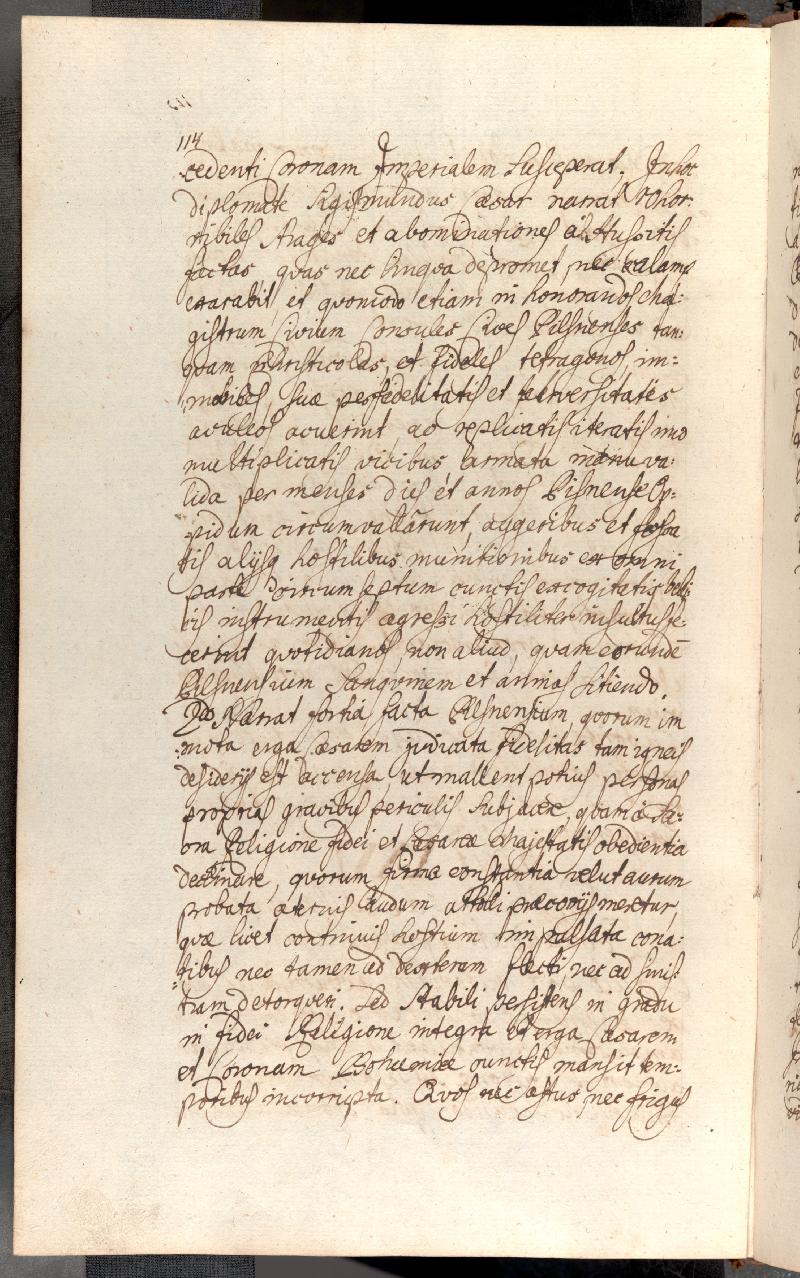 114
cedenti Coronam Imperialem Susceperat. In hoc
diplomate Sigismundus Cæsar narrat 1mo hor:
ribiles strages et abominationes ab Hussitis
factas quas nec lingva depromet, nec calamo
exarabit, et qvomodo etiam in honorandos Ma:
gistrum Civium Consules Cives Pilsnenses tan:
qvam Christicolas, et fideles tetragonos, im:
mobiles, suæ perfidelitatis et perversitates
aculeos acuerint, ac replicatis iteratis imo
multiplicatis vicibus armata manu va:
lida per menses dies et annos Pilsnense Op:
pidum circumvallârunt, aggeribus et fossa
tis alijsq hostilibus munitionibus ex omni
parte circumseptum cunctis excogitatis belli
cis instrumentis agressi hostiliter insultus fe:
cerint qvotidianos, non aliud, qvam eorundē
Pilsnensium Sangvinem et animas sitiendo.
2do Narrat fortia facta Pilsnensium, qvorum im
:mota erga Cæsarem judicata fidelitas tam igneis
desiderijs est accensa, ut mallent potius personas
proprias gravibus periculis subjacere, qvam a Sa:
cra Religione fidei et Cæsareæ Majestatis obedientia
declinare, qvorum firma constantia velut aurum
probata æternis laudum attolli præconijs meretur,
qvæ licet continuis hostium impulsata cona:
tibus nec tamen ad dexteram flecti, nec ad sinis:
tram detorqveri. Sed Stabili persistens in gradu
in fidei Religione integra et erga Cæsarem
et Coronam Bohemiæ cunctis mansit tem:
poribus incorrupta. Qvos nec æstus nec frigus